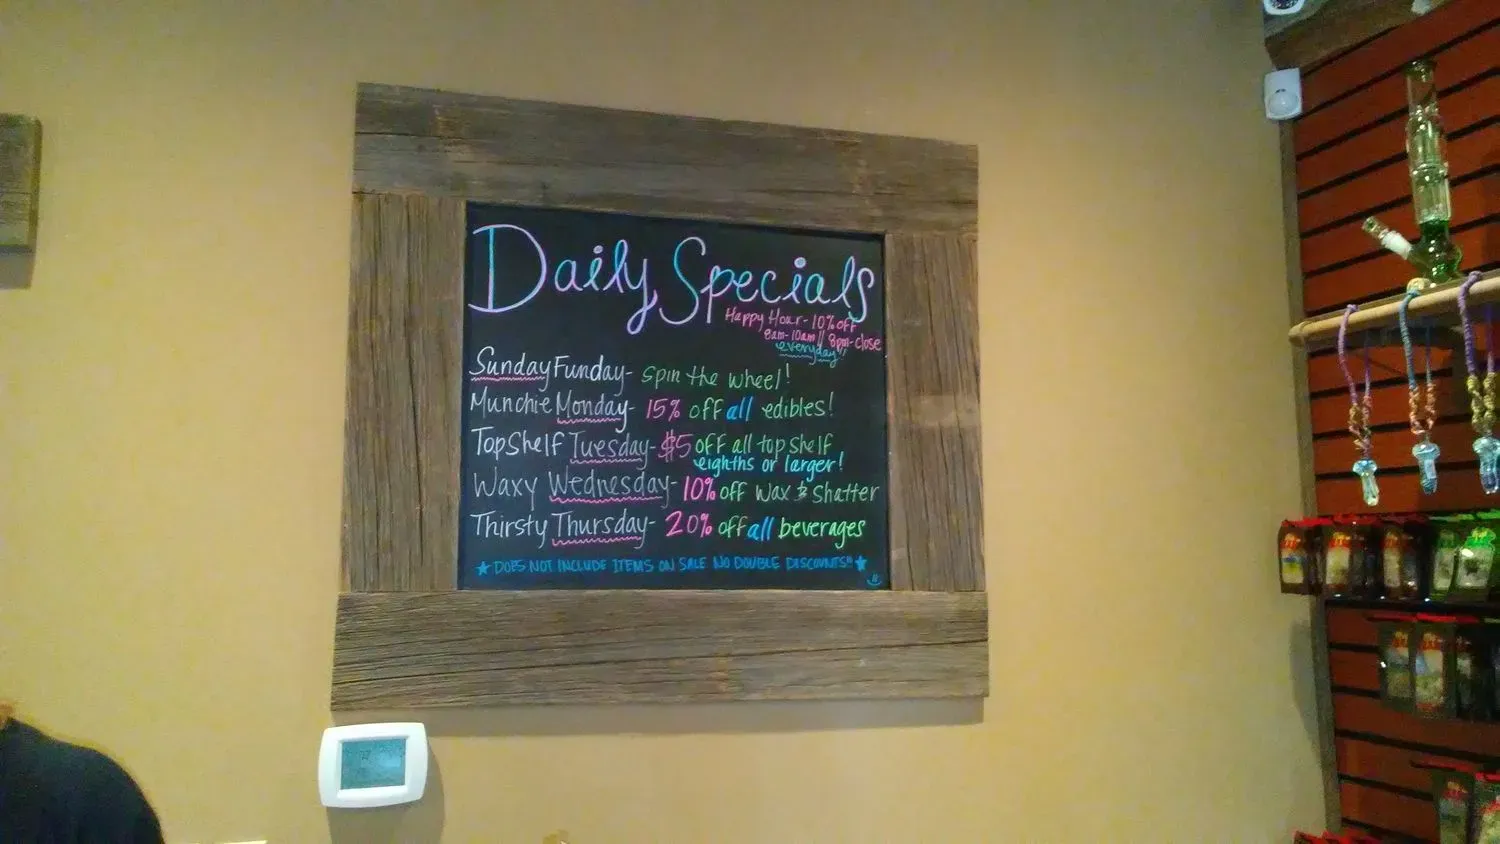 Daily Specials
Happy Hour - 10% off
8am-10am // 8pm-close
everyday"
Sunday Funday - spin the wheel!
Munchie Monday - 15% off all edibles!
TopShelf Tuesday - $5 off all top shelf
eighths or larger!
Waxy Wednesday - 10% off wax & shatter
Thirsty Thursday - 20% off all beverages
★ DOES NOT INCLUDE ITEMS ON SALE NO DOUBLE DISCOUNTS" ★